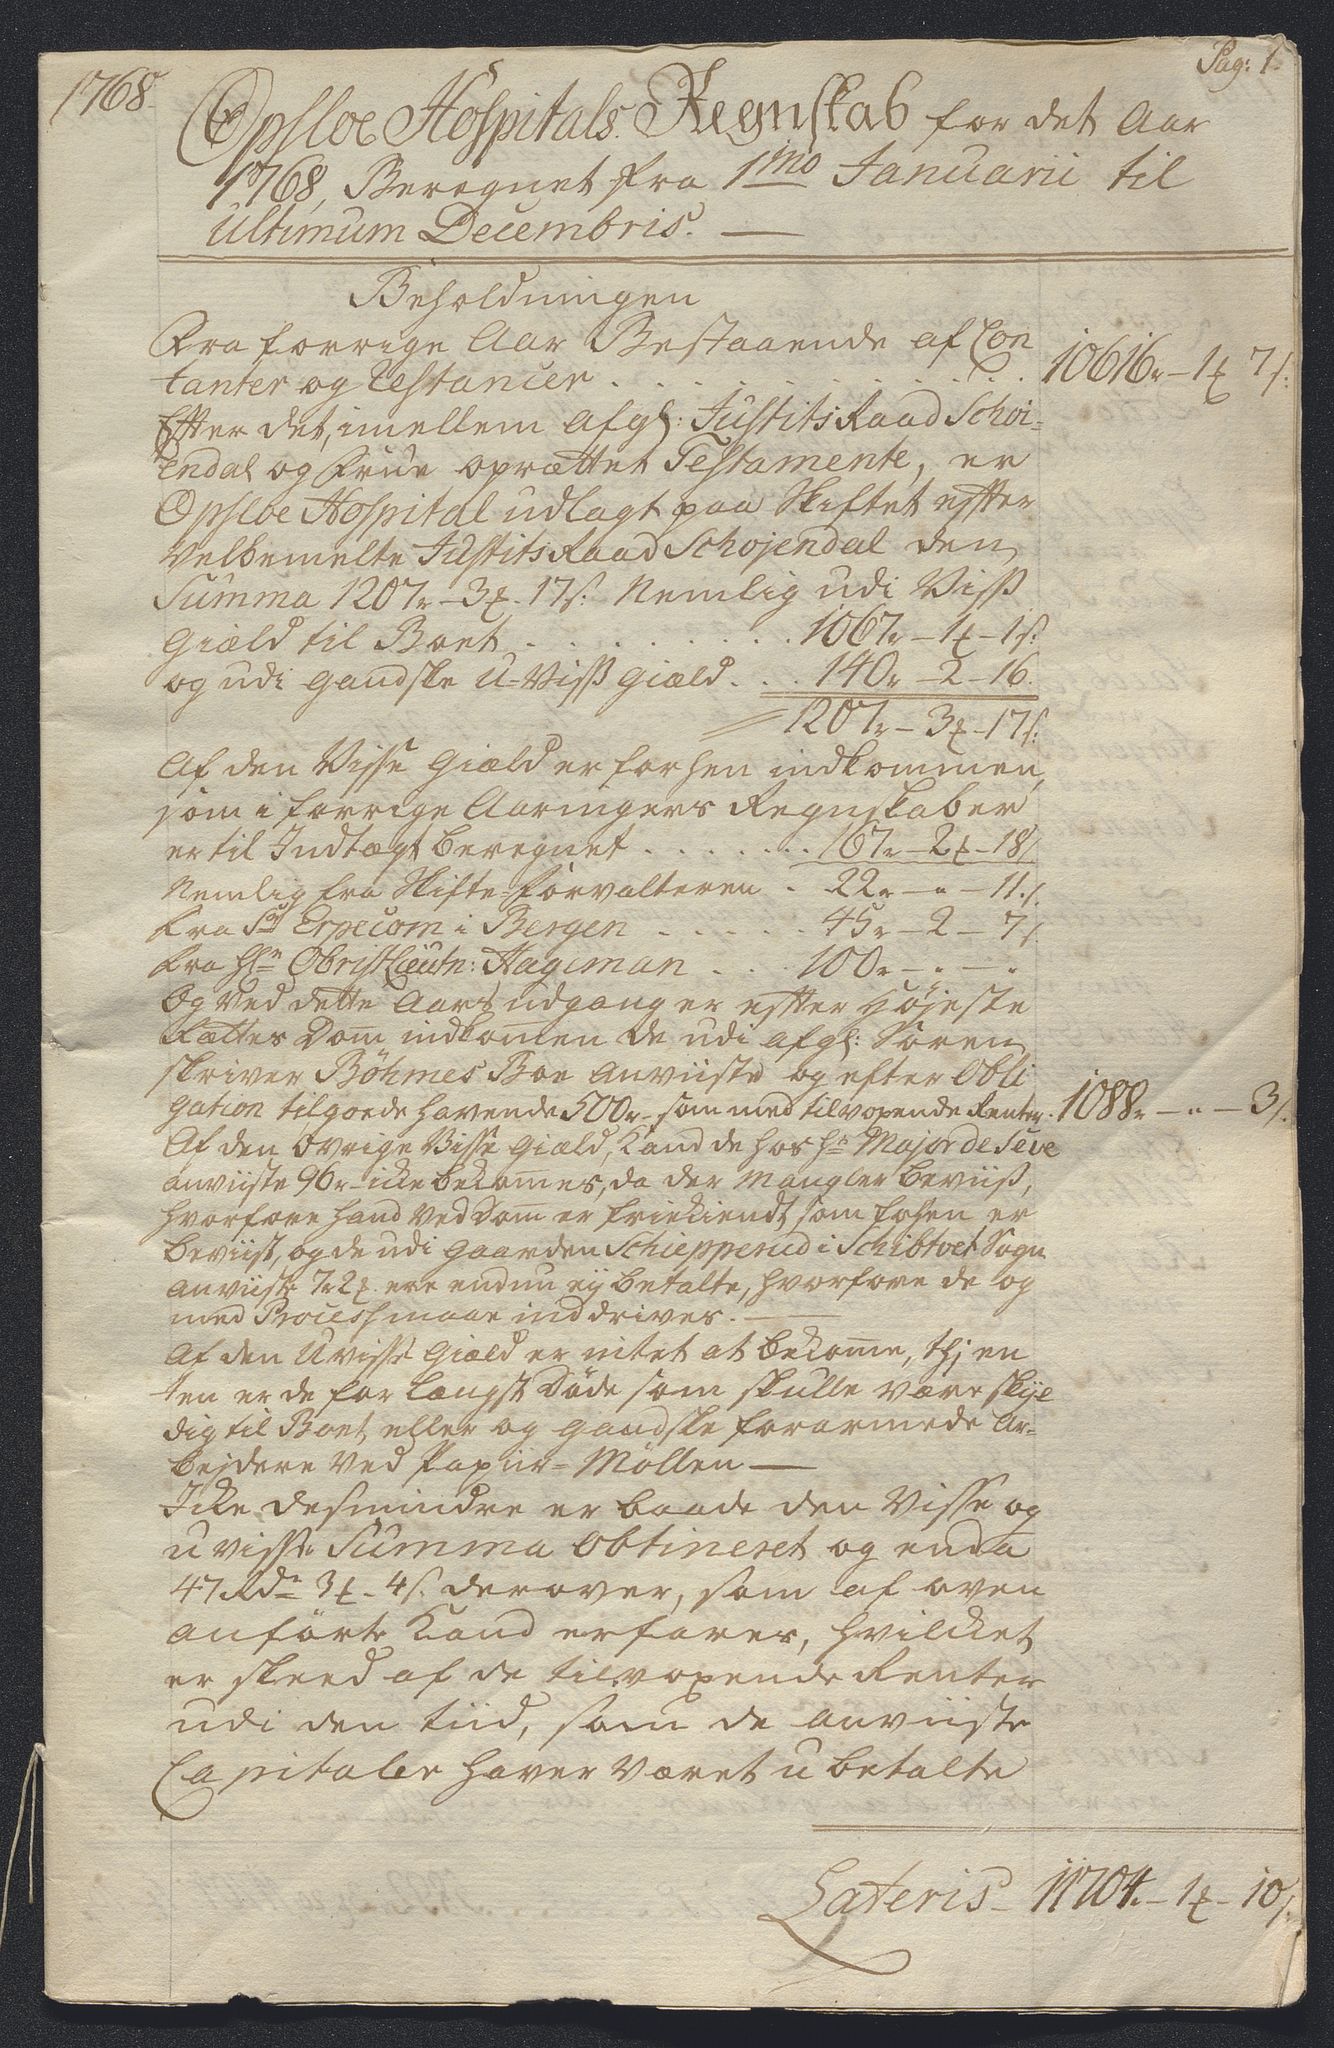 Pag: 1.
1768.
Opsloe Hospitals Regnskab for det Aar
1768, Beregnet fra 1mo Januarii til
Ultimum Decembris. —
Beholdningen
Fra forrige Aar Bestaaende af Con
tanter og Restancer . . . . . 10616r – 1 7s:
Efter det, imellem afg: JustitsRaad Schøi-
endal og Frue oprættet Testamente, er
Opsloe Hospital udlagt paa Skiftet efter
Velbemelte JustitsRaad Schøjendal den
Summa 1207r – 3 – 17s: Nemlig udi Viss
Giæld til Boet . . . . . 1067r – 1 – 1s:
og udi gandske U-Viss Giæld . . . 140r – 2 – 16.
1207r – 3 – 17s:
Af den Visse Giæld er forhen indkommen,
som i forrige Aaringers Regnskaber
er til Indtægt beregnet . . . . . 167r – 2 – 18s
Nemlig fra Skifte-forvalteren . 22r – „ – 11s.
fra Sr Erpecom i Bergen . . . . . 45r – 2 – 7s
fra Hr Obristlieutn: Hageman . . . 100r – „ – „
Og ved dette Aars udgang er efter Høieste
Rættes Dom indkomen de udi afg: Soren
skriver Böhmes Boe anviiste og efter Obli
gation tilgoede havende 500r – som med tilvoxende Renter . 1088r – „ – 3s.
Af den övrige Visse Giæld, kand de hos Hr Major de Seve
anviiste 96r – icke bekomes, da der Mangler beviiß,
hvorfore hand ved Dom er friekiendt, som forhen er
beviist, og de udi gaarden Schiepperud i Schibtvet Sogn
anviiste 7r 2 ere endnu ej betalte, hvorfore de og
med Process maae inddrives. —
Af den Uvisse Giæld er intet at bekome, thi en
ten er de for længst döde som skulle være skyl
dig til Boet, eller og gandske forarmede Ar-
bejdere ved Papiir-Möllen —
Icke desmindre er baade den Visse og
uvisse Summa obtineret og enda
47 Rdr 3 – 4s. derover, som af oven
anförte kand erfares, hvilcket
er skeed af de tilvoxende Renter
udi den tiid, som de anviiste
Capitaler haver været u betalte
Lateris – 11704. – 1 – 10s.